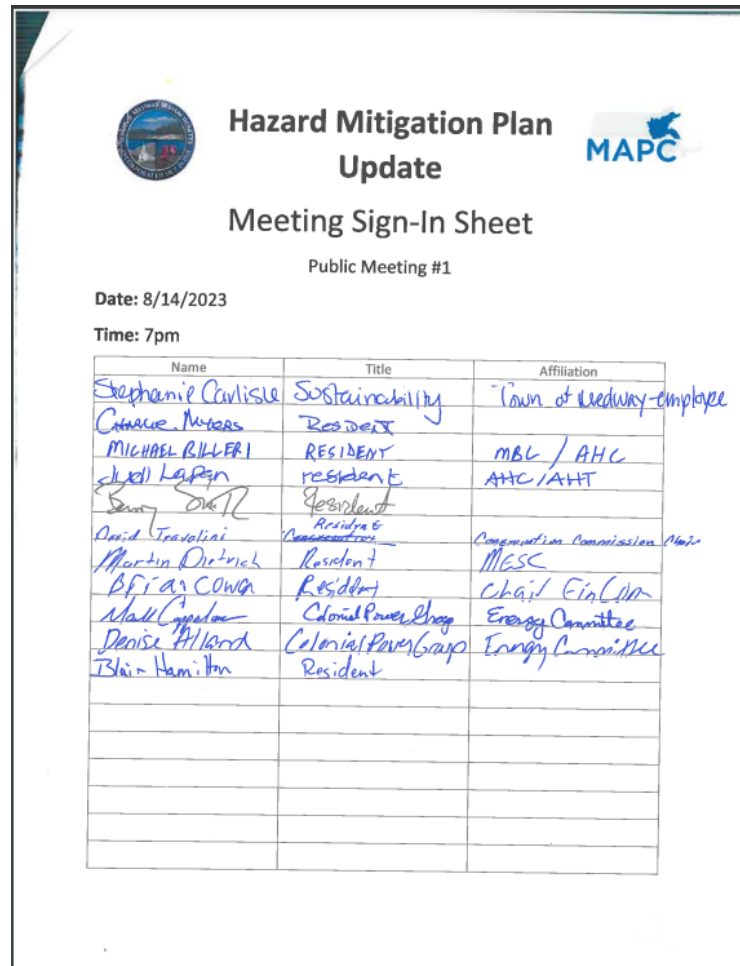 Hazard Mitigation Plan
Update
MAPC
Meeting Sign-In Sheet
Public Meeting #1
Date: 8/14/2023
Time: 7pm
Name Title Affiliation
Stephanie Carlisle Sustainability Town of Medway-employee
Charlie Myers Resident
MICHAEL BILLERI RESIDENT MBL / AHC
Lapan resident AHC/AHT
Resident
David Travalini Resident Conservation Commission Chair
Martin Dietrich Resident MESC
Brian Cowan Resident Chair FinCom
Mark Cappadona Colonial Power Group Energy Committee
Denise Allard Colonial Power Group Energy Committee
Blair Hamilton Resident